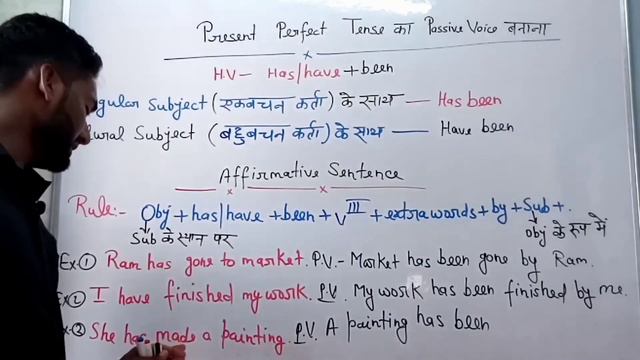 Present Perfect Tense का Passive Voice बनाना
H.V – Has/have + been
gular Subject (एकवचन कर्ता) के साथ — Has been
lural Subject (बहुबचन कर्ता) के साथ — Have been
Affirmative Sentence
Rule:- Obj + has/have + been + V III + extra words + by + Sub +.
Sub के स्थान पर obj के रूप में
Ex-① Ram has gone to market. P.V.- Market has been gone by Ram.
Ex-② I have finished my work. P.V. My work has been finished by me.
x-③ She has made a painting. P.V. A painting has been